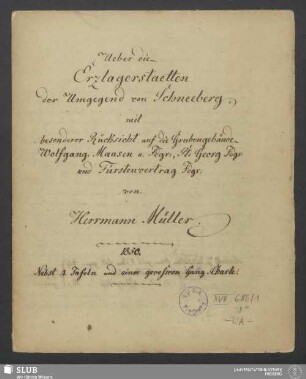 Ueber die
Erzlagerstaetten
der Umgegend von Schneeberg,
mit
besonderer Rücksicht auf die Grubengebäude
Wolfgang Maasen u. Fdgr., St. Georg Fdgr
und Fürstenvertrag Fdgr.
von
Herrmann Müller.
1850.
Nebst 2 Tafeln und einer grossern Gang Charte.
XVII 686/1
SLUB
Wir führen Wissen.